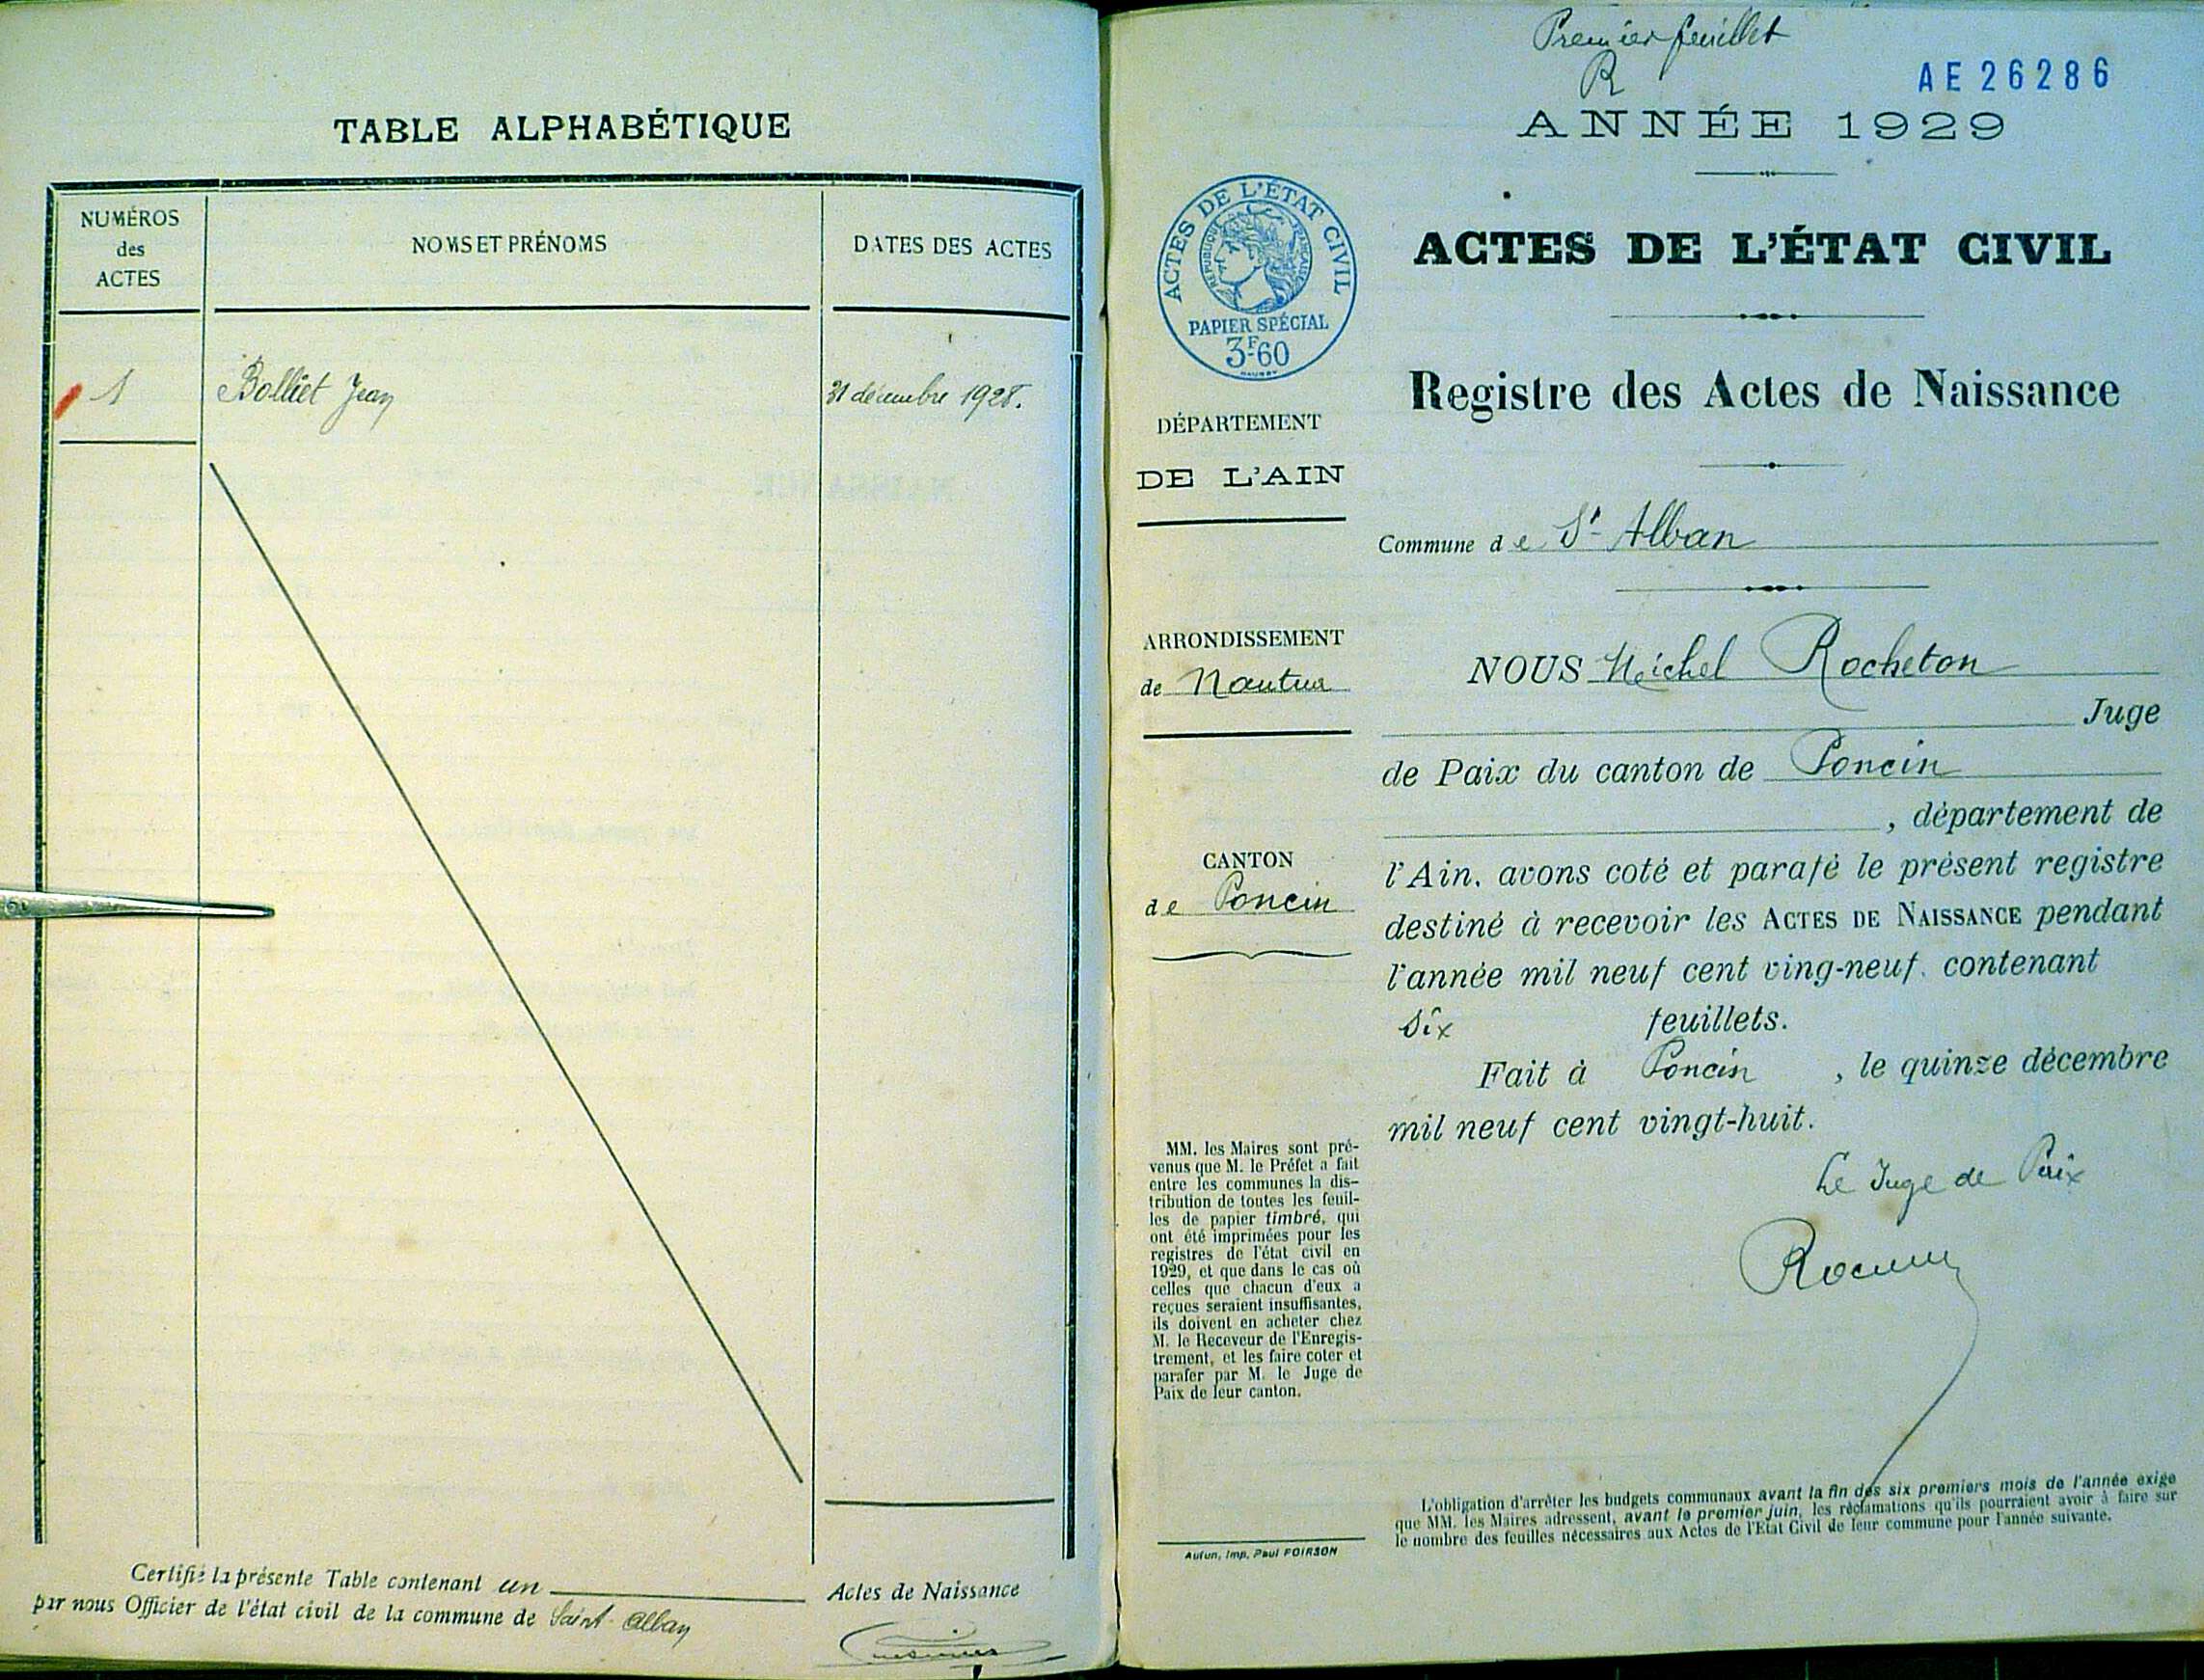 TABLE ALPHABÉTIQUE
NUMÉROS
des
ACTES
NOMS ET PRÉNOMS
DATES DES ACTES
1
Bolliet Jean
31 décembre 1928.
Certifié la présente Table contenant un
Actes de Naissance
par nous Officier de l'état civil de la commune de Saint-Alban
Premier feuillet
R
AE 26286
ANNÉE 1929
ACTES DE L'ÉTAT CIVIL
RÉPUBLIQUE FRANÇAISE
PAPIER SPÉCIAL
3F60
ACTES DE L'ÉTAT CIVIL
Registre des Actes de Naissance
DÉPARTEMENT
DE L'AIN
Commune de St-Alban
ARRONDISSEMENT
de Nantua
CANTON
de Poncin
NOUS Michel Rocheton
Juge
de Paix du canton de Poncin
, département de
l'Ain. avons coté et parafé le présent registre
destiné à recevoir les ACTES DE NAISSANCE pendant
l'année mil neuf cent ving-neuf. contenant
six feuillets.
Fait à Poncin , le quinze décembre
mil neuf cent vingt-huit.
Le Juge de Paix
MM. les Maires sont pré-
venus que M. le Préfet a fait
entre les communes la dis-
tribution de toutes les feuil-
les de papier timbré, qui
ont été imprimées pour les
registres de l'état civil en
1929, et que dans le cas où
celles que chacun d'eux a
reçues seraient insuffisantes,
ils doivent en acheter chez
M. le Receveur de l'Enregis-
trement, et les faire coter et
parafer par M. le Juge de
Paix de leur canton.
Autun, Imp. Paul POIRSON
L'obligation d'arrêter les budgets communaux avant la fin des six premiers mois de l'année exige
que MM. les Maires adressent, avant le premier juin, les réclamations qu'ils pourraient avoir à faire sur
le nombre des feuilles nécessaires aux Actes de l'Etat Civil de leur commune pour l'année suivante.